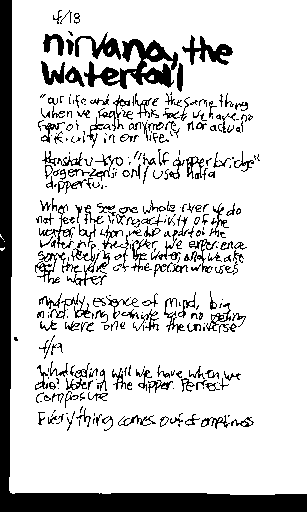 4/18
nirvana, the
Waterfall
"our life and death are the same thing
when we realize this fact we have no
fear of death anymore, nor actual
difficulty in our life."
"half dipper bridge"
Dogen-zenji only used half a
dipperful.
When we see one whole river we do
not feel the living activity of the
water, but when we dip a part of the
water into the dipper, we experience
some feeling of the water, and we also
feel the value of the person who uses
the water
mind-only, essence of mind, big
mind. being born we had no feeling
we were one with the universe
4/19
What feeling will we have when we
die? Water in the dipper. Perfect
composure
Everything comes out of emptiness